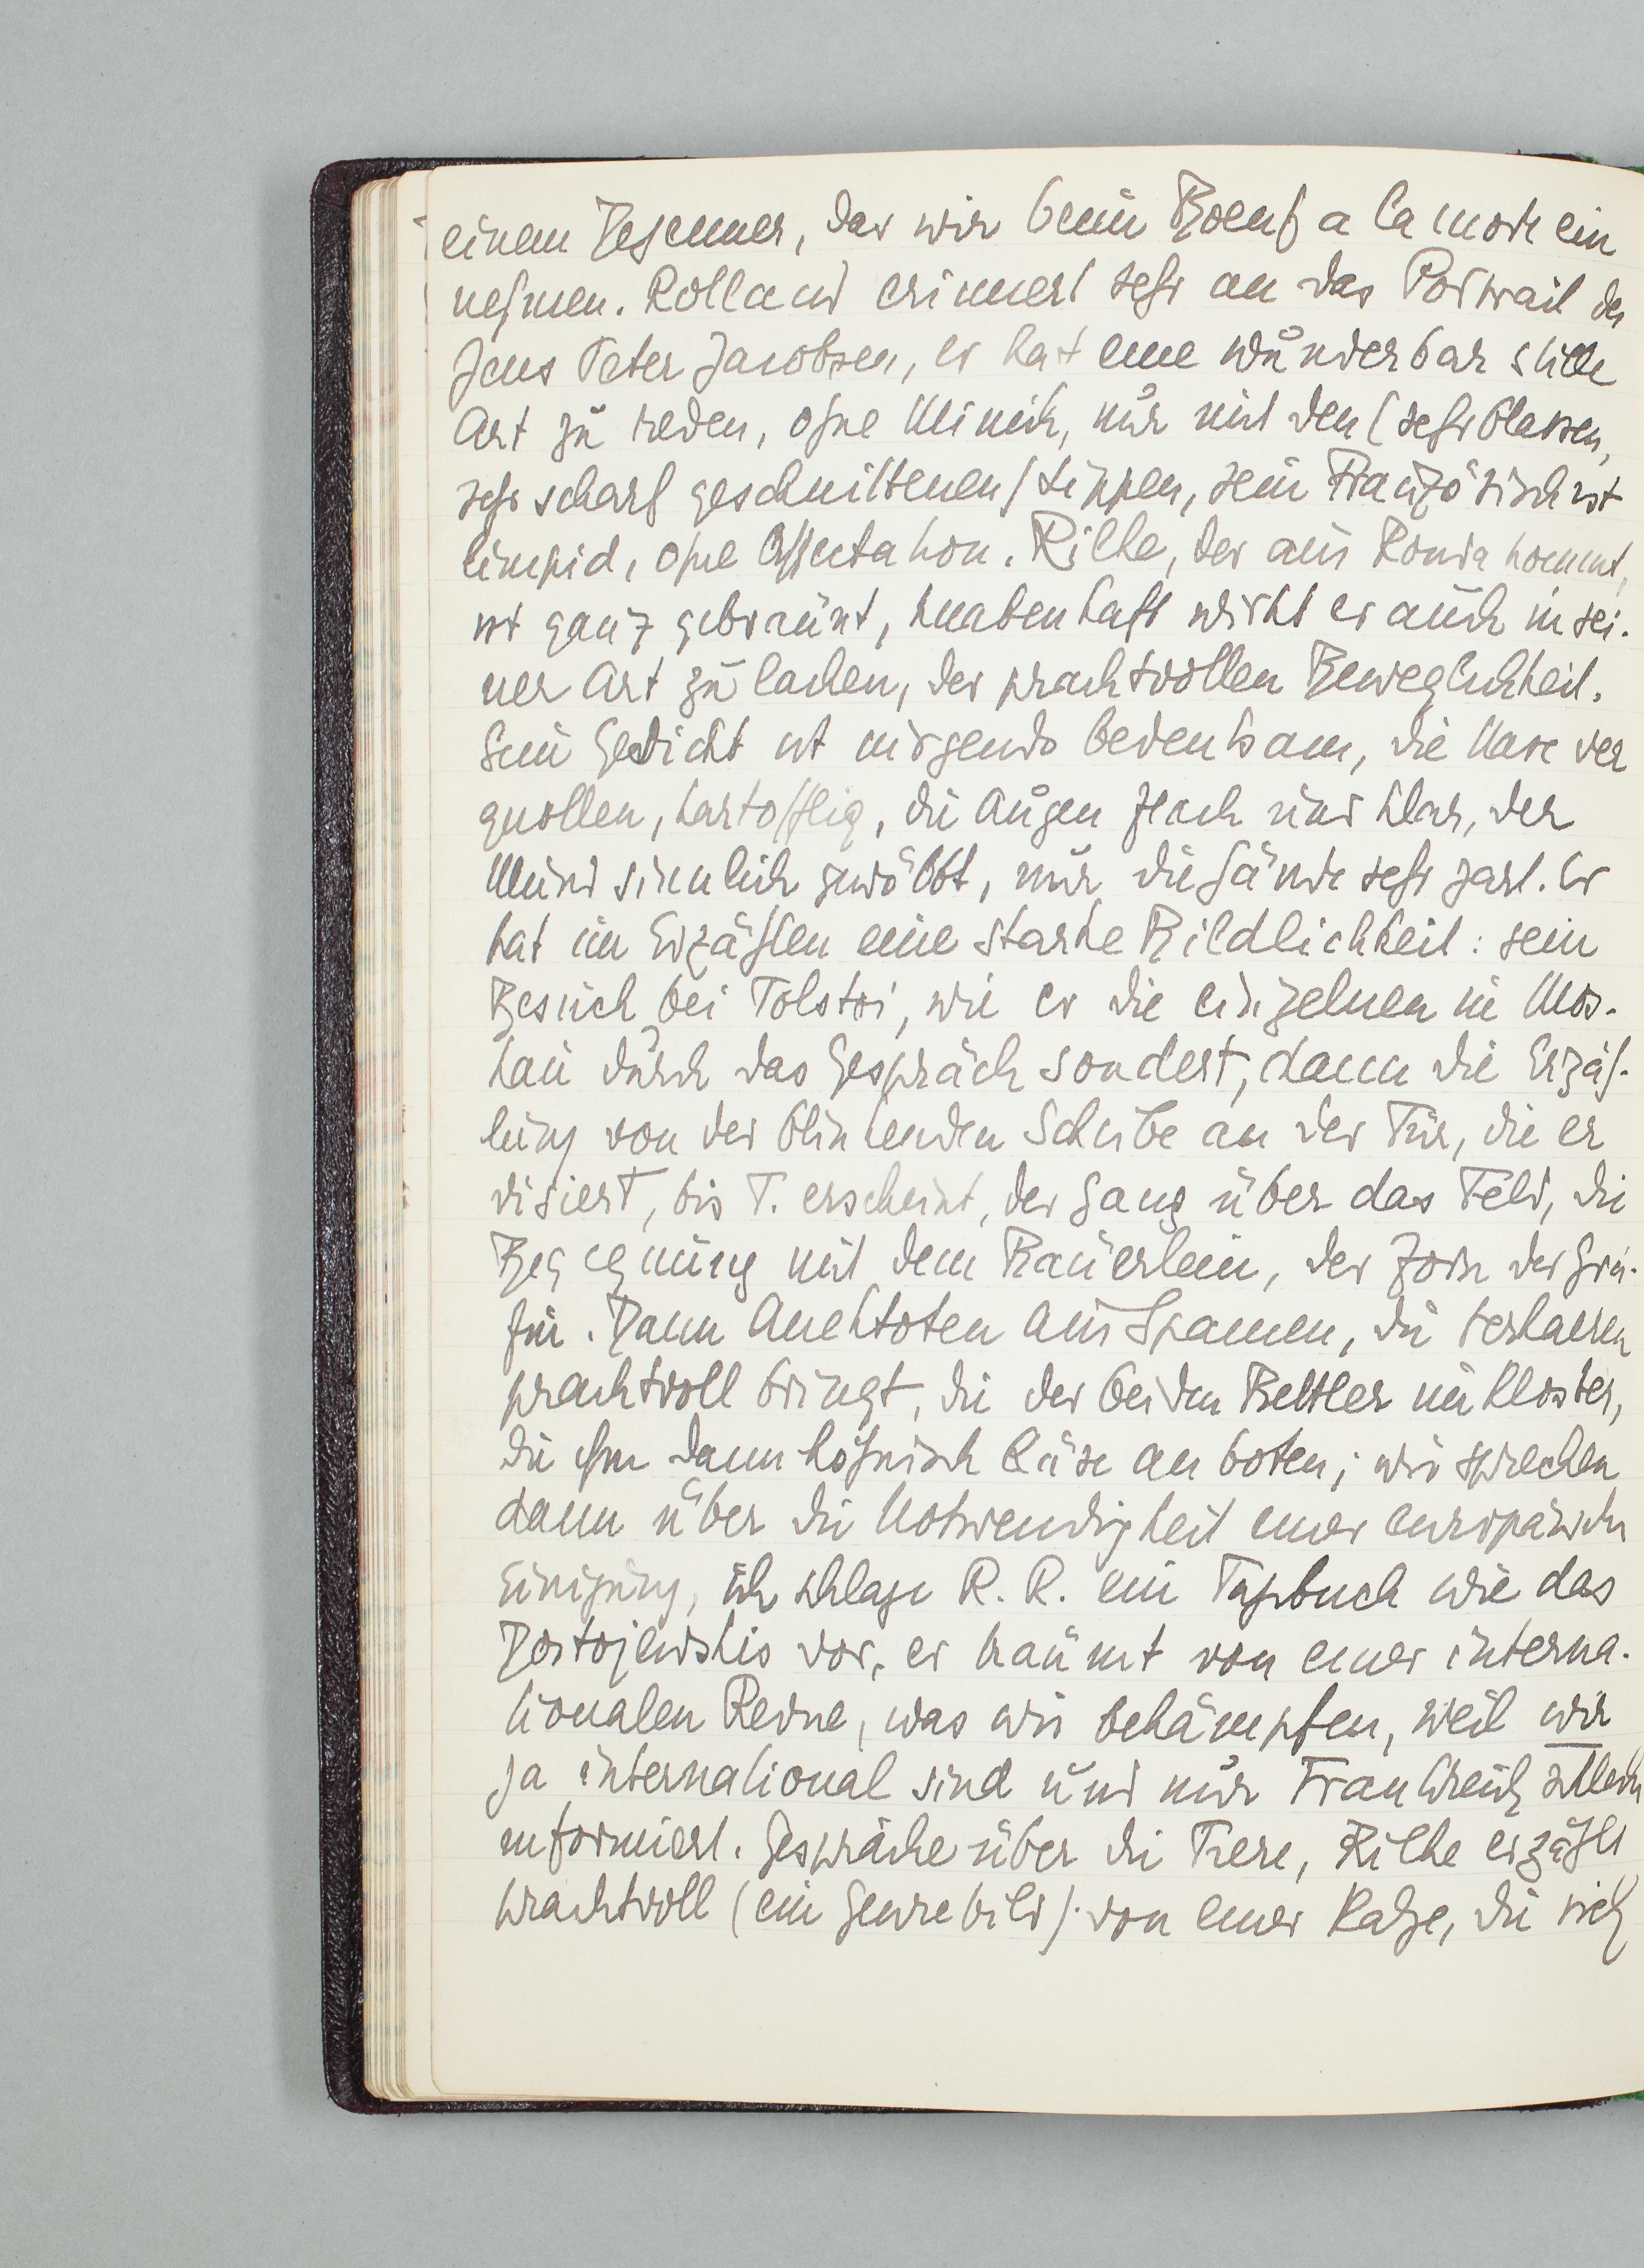 einem Dejeuner, das wir beim Boeuf a la mode ein
nehmen. Rolland erinnert sehr an das Portrait des
Jens Peter Jacobsen, er hat eine wunderbar stille
Art zu reden, ohne Mimik, nur mit den (sehr blassen,
sehr scharf geschnittenen) Lippen, sein Französisch ist
limpid, ohne Affectation. Rilke, der aus Ronda kommt,
ist ganz gebräunt, knabenhaft wirkt er auch in sei-
ner Art zu lachen, der prachtvollen Beweglichkeit.
Sein Gesicht ist nirgends bedeutsam, die Nase ver
quollen, kartofflig, die Augen flach und klar, der
Mund sinnlich gewölbt, nur die Hände sehr zart. Er
hat im Erzählen eine starke Bildlichkeit: sein
Besuch bei Tolstoi, wie er die einzelnen in Mos-
kau durch das Gespräch sondert, dann die Erzäh-
lung von der blinkenden Scheibe an der Tür, die er
visiert, bis T. erscheint, der Gang über das Feld, die
Begegnung mit dem Bäuerlein, der Zorn der Grä-
fin. Dann Anektoten aus Spanien, die
prachtvoll bringt, die der beiden Bettler im Kloster,
die ihm dann höhnisch Käse anboten; wir sprechen
dann über die Notwendigkeit einer europäischen
Einigung, ich schlage R. R. ein Tagebuch wie das
Dostojewskis vor, er träumt von einer interna-
tionalen Revue, was wir bekämpfen, weil wir
ja international sind und nur Frankreich schlecht
informiert. Gespräche über die Tiere, Rilke erzählt
prachtvoll (ein Genrebild) von einer Katze, die sich